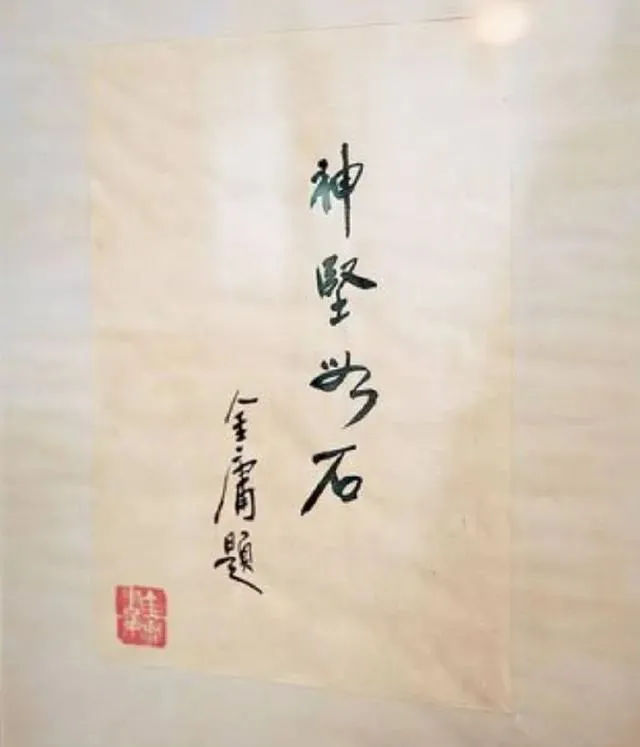 神堅若石
金庸題